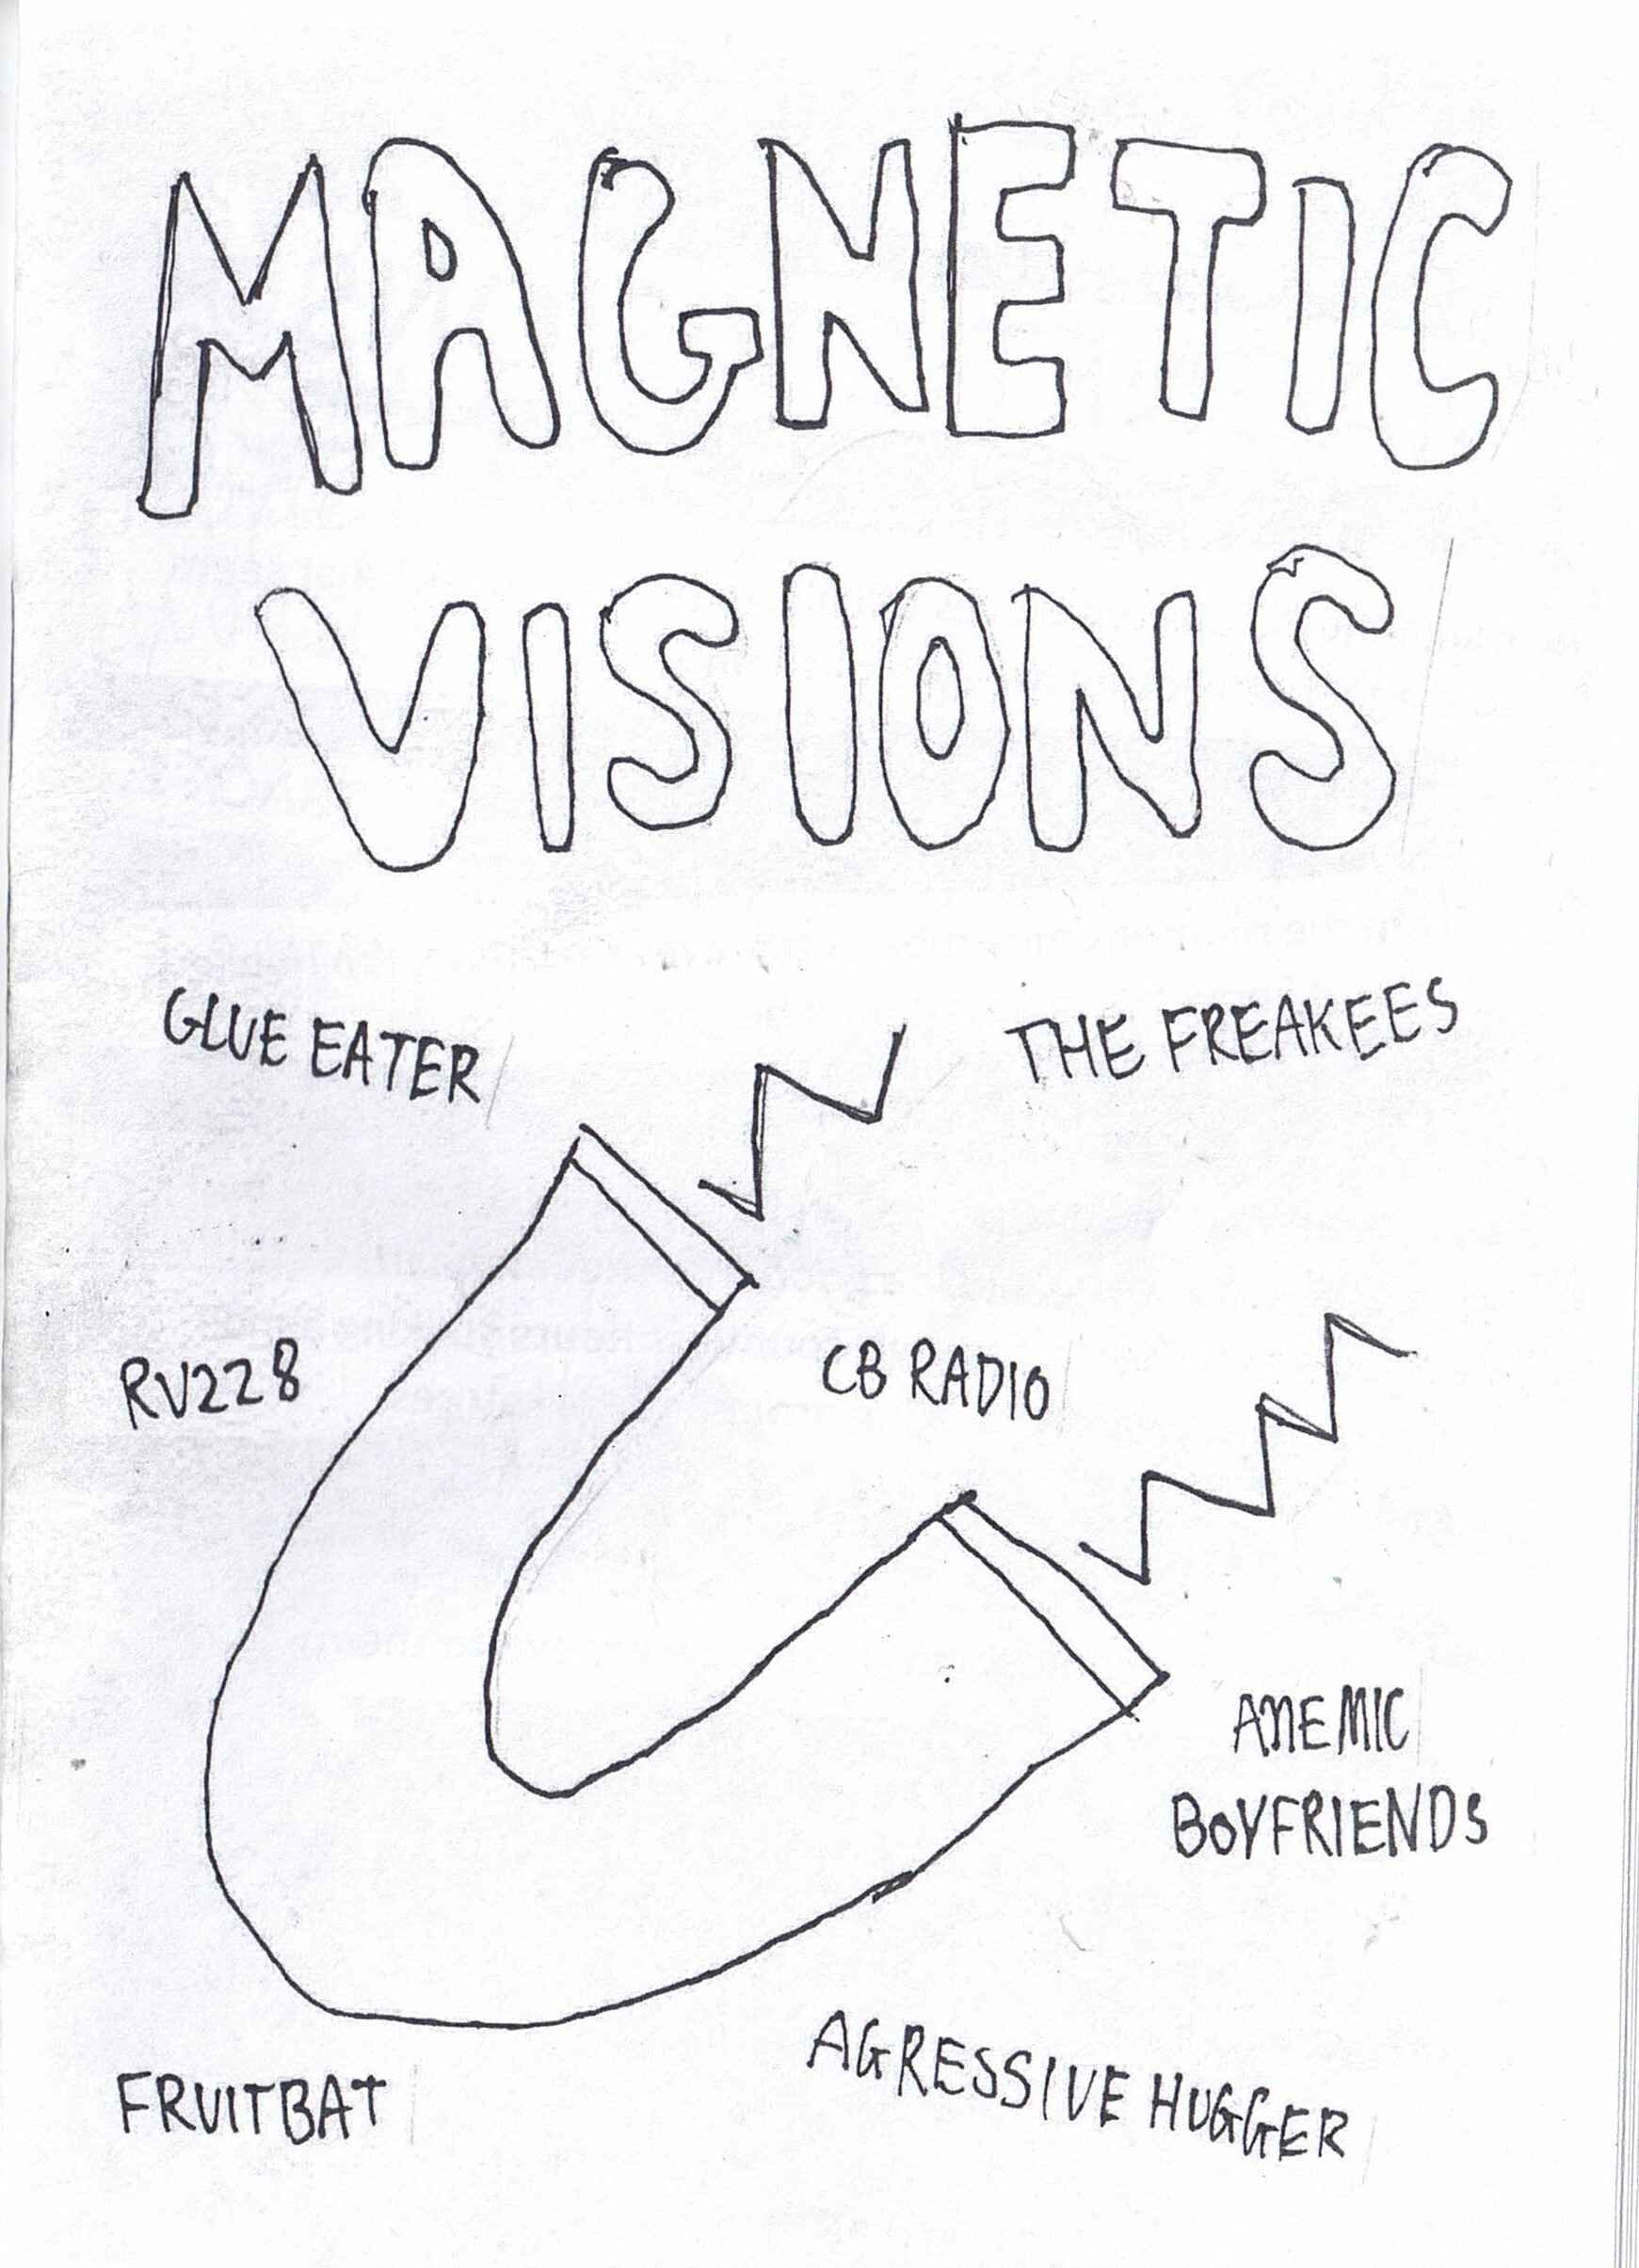 MAGNETIC
VISIONS
GLUE EATER
THE FREAKEES
RV228
CB RADIO
ANEMIC
BOYFRIENDS
AGRESSIVE HUGGER
FRUITBAT